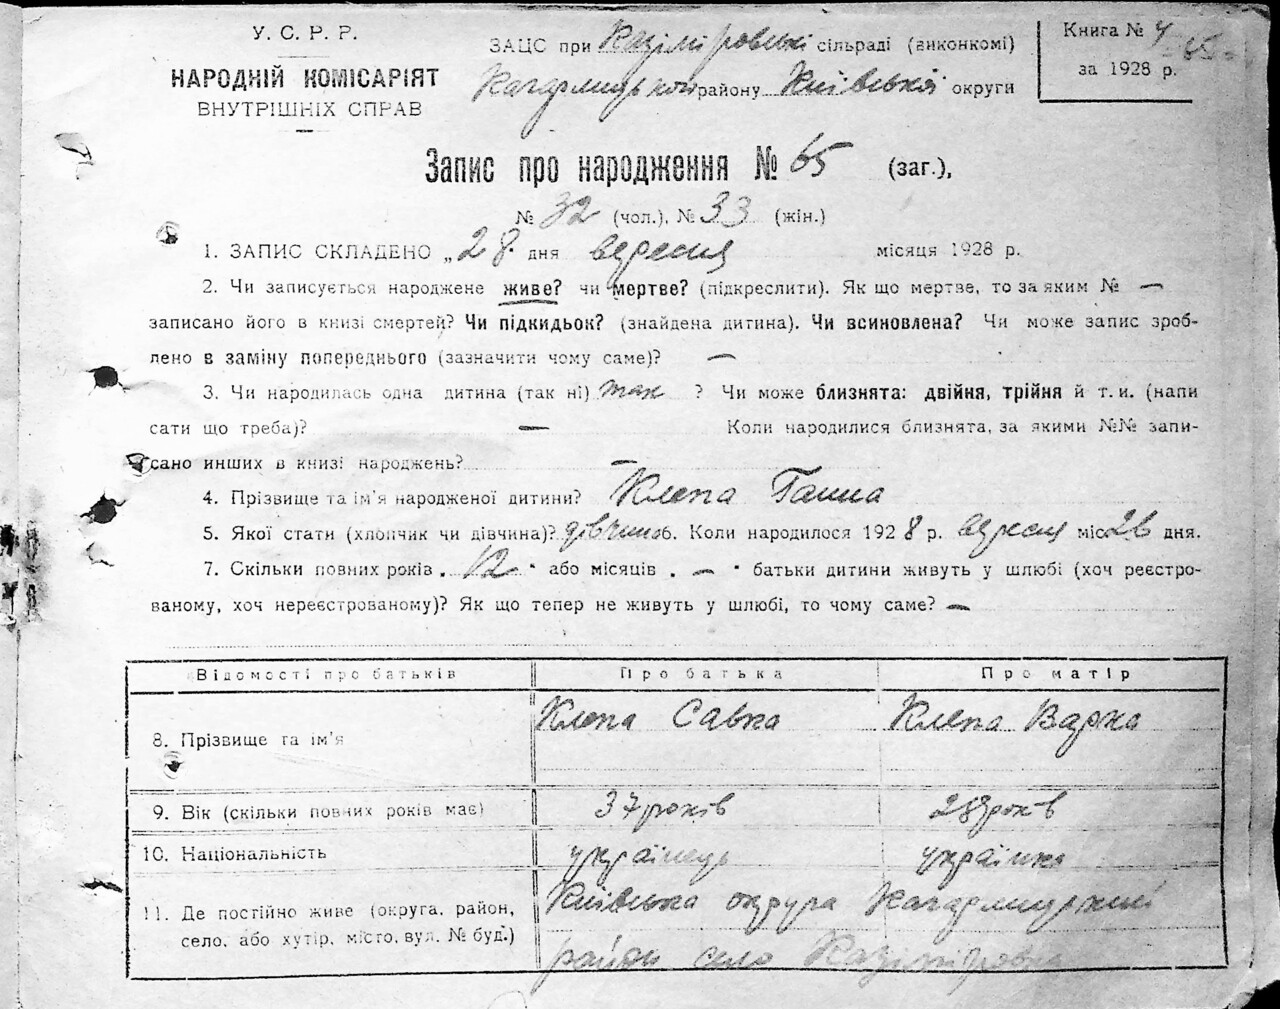 У. С. Р. Р.
НАРОДНІЙ КОМІСАРІЯТ
ВНУТРІШНІХ СПРАВ
ЗАЦС при Казіміровські сільраді (виконкомі)
Кагарлицького району Київської округи
Книга № 4
за 1928 р.
65
Запис про народження № 65 (заг.),
№ 32 (чол.), № 33 (жін.)
1. ЗАПИС СКЛАДЕНО „28 дня вересня місяця 1928 р.
2. Чи записується народжене живе? чи мертве? (підкреслити). Як що мертве, то за яким № —
записано його в книзі смертей? Чи підкидьок? (знайдена дитина). Чи всиновлена? Чи може запис зроб-
лено в заміну попереднього (зазначити чому саме)? —
3. Чи народилась одна дитина (так ні) так ? Чи може близнята: двійня, трійня й т. и. (напи
сати що треба)? — Коли народилися близнята, за якими №№ запи-
сано инших в книзі народжень? —
4. Прізвище та ім'я народженої дитини? Клепа Ганна
5. Якої стати (хлопчик чи дівчина)? дівчина 6. Коли народилося 1928 р. вересня міс 26 дня.
7. Скільки повних років . 12 або місяців . — батьки дитини живуть у шлюбі (хоч реєстро-
ваному, хоч нереєстрованому)? Як що тепер не живуть у шлюбі, то чому саме? —
Відомості про батьків Про батька Про матір
8. Прізвище та ім'я Клепа Савка Клепа Варка
9. Вік (скільки повних років має) 37 років 28 років
10. Національність українець українка
11. Де постійно живе (округа, район, Київська округа Кагарлицький
село, або хутір, місто, вул. № буд.) район село Казіміровка